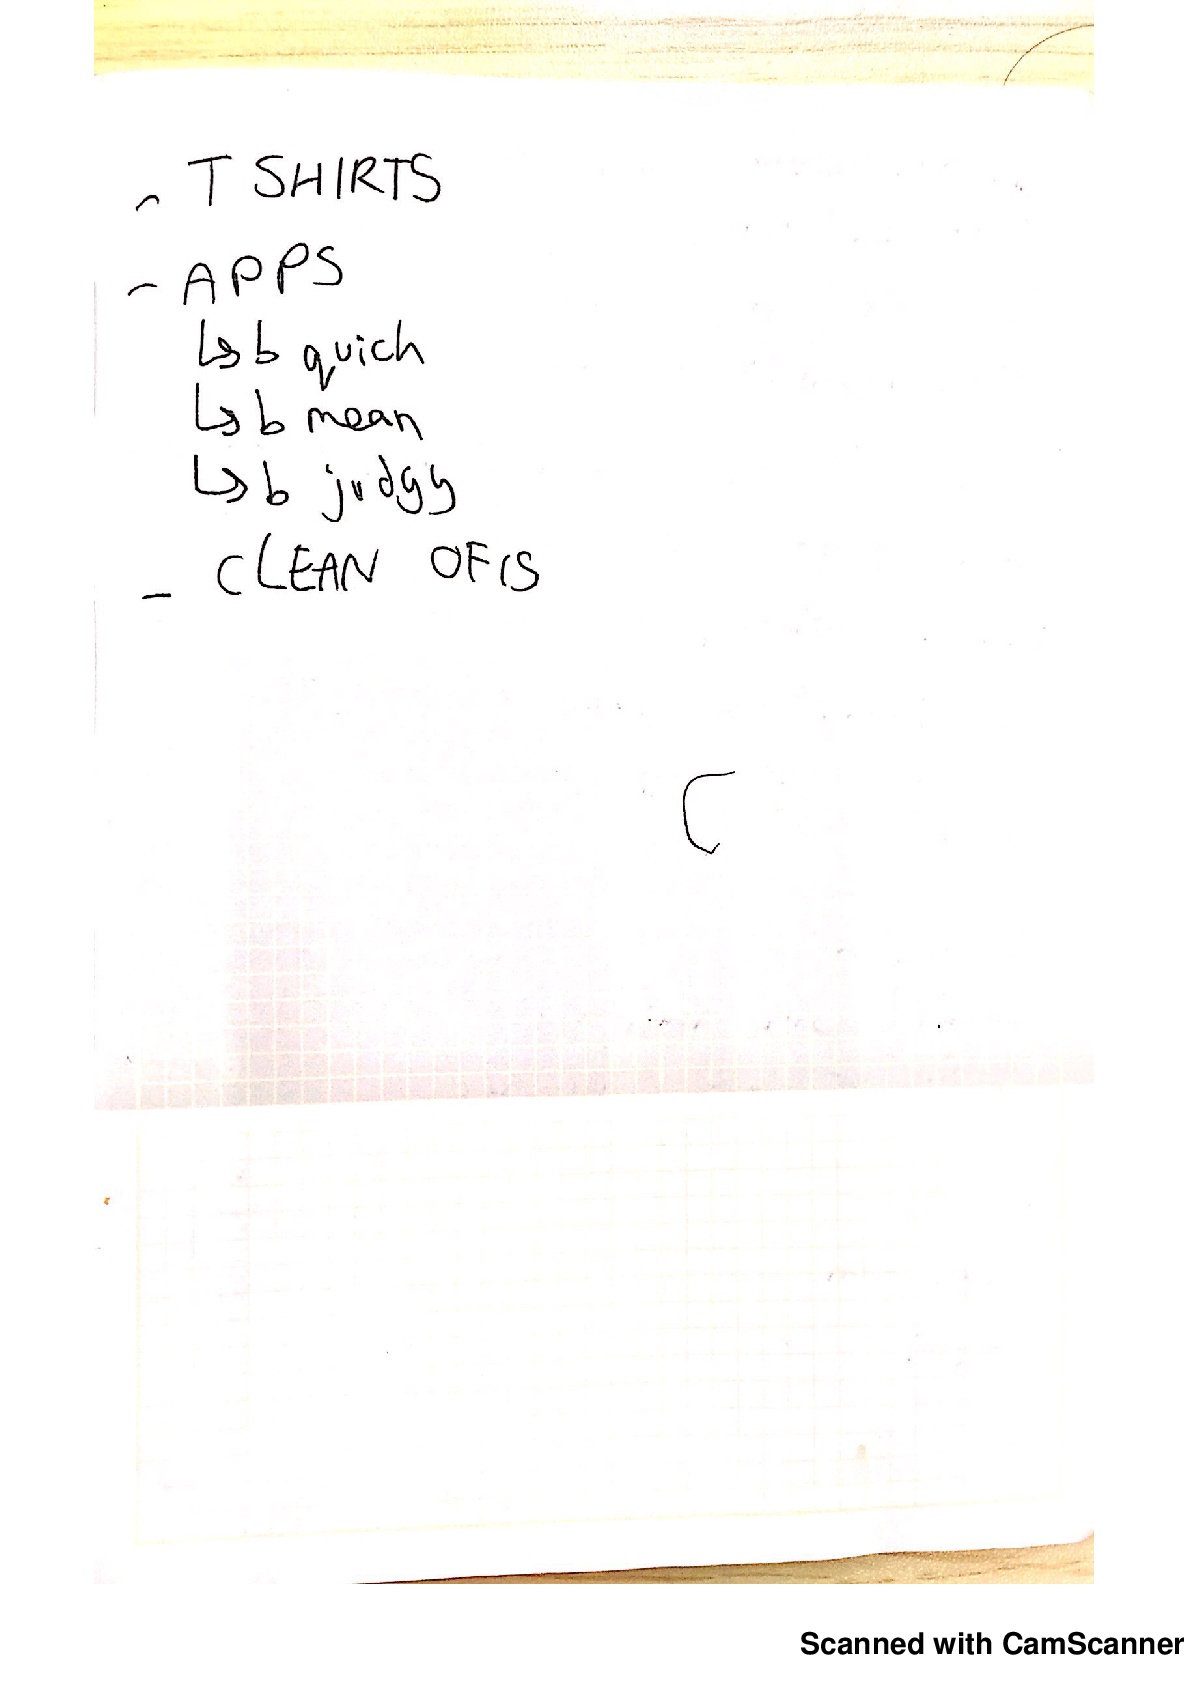 - T SHIRTS
- APPS
↳ b quich
↳ b mean
↳ b judgy
- CLEAN OFIS
Scanned with CamScanner